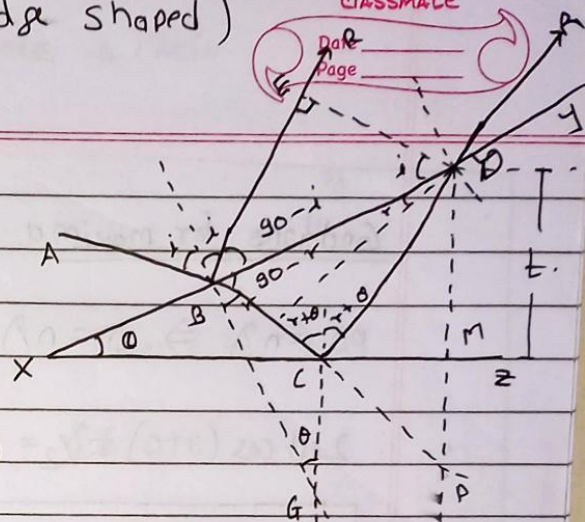 dge shaped)
CLASSMATE
Date R R
Page
E
y
i C D
90-i t.
i i
A
90-r
B r r+θ r+θ M
X θ C Z
θ
G P